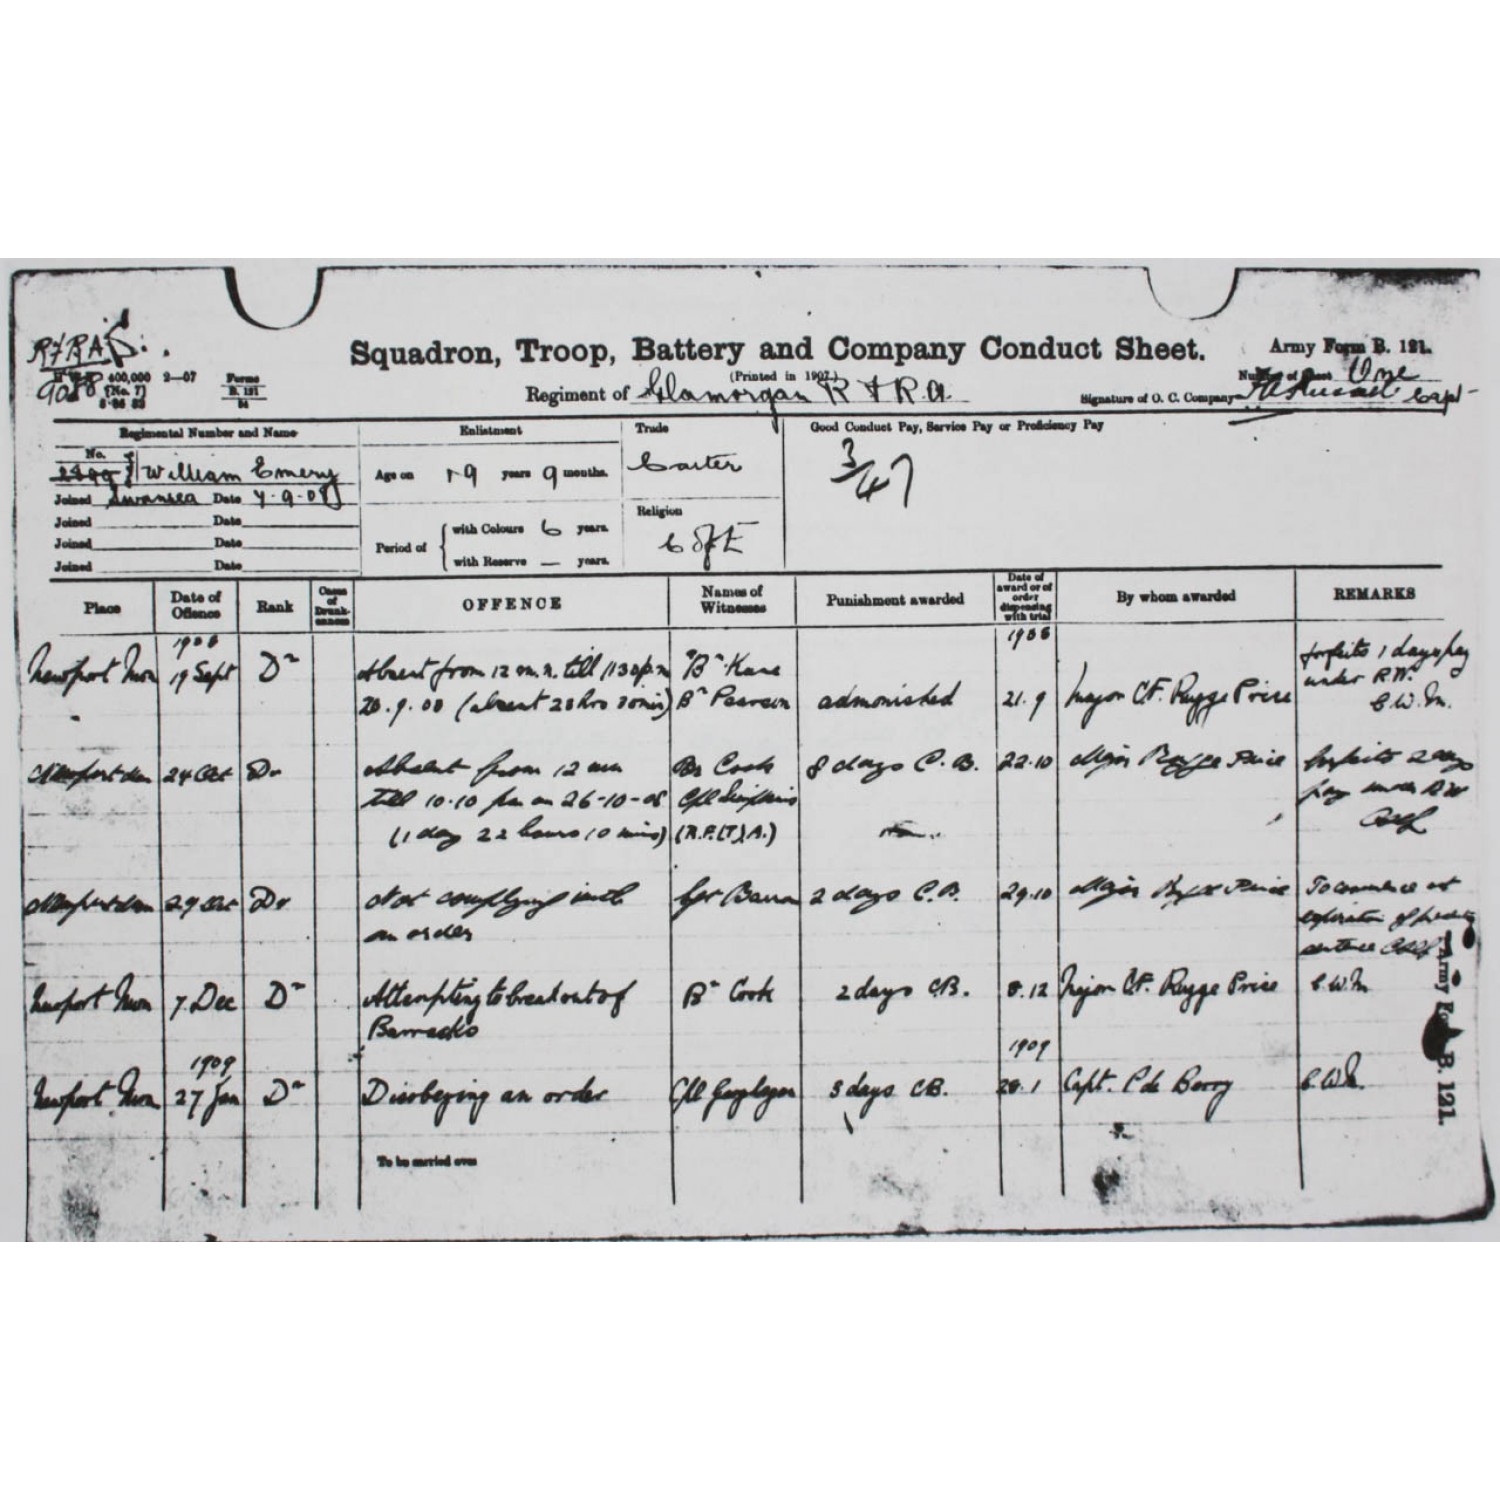 R.F.R.A.
Squadron, Troop, Battery and Company Conduct Sheet.
Army Form B. 121.
9088
400,000 2—07
(No. 7)
Forms
B. 121
(Printed in 1907.)
Number of Sheet One
Regiment of Glamorgan R F R.A.
Signature of O. C. Company Capt
Regimental Number and Name
Enlistment
Trade
Good Conduct Pay, Service Pay or Proficiency Pay
No.
William Emery
Age on 19 years 9 months.
Carter
3/47
Joined Swansea Date 7.9.08
Joined Date
Joined Date
Joined Date
Period of
with Colours 6 years.
with Reserve — years.
Religion
C of E
Place
Date of Offence
Rank
Cases of Drunkenness
OFFENCE
Names of Witnesses
Punishment awarded
Date of award or of order dispensing with trial
By whom awarded
REMARKS
1908
1908
Newport Mon 19 Sept Dr Absent from 12 m.n. till 11.30 p.m Br Kane forfeits 1 days pay under R.W.
20.9.08 (absent 23 hrs 30 mins) Br Pearson admonished 21.9 Major C.F. Rugge Price C.W.M.
Newport Mon 24 Oct Dr Absent from 12 mn Br Cook 8 days C.B. 22.10 Major Rugge Price forfeits 2 days
till 10.10 pm on 26-10-08 Cpl Simpkins pay under RW
(1 day 22 hours 10 mins) (R.F.(T).A.)
Newport Mon 29 Oct Dr Not complying with Gr 2 days C.B. 29.10 Major Rugge Price To commence at
an order expiration of
sentence
Newport Mon 7 Dec Dr Attempting to break out of Br Cook 2 days C.B. 8.12 Major C.F. Rugge Price C.W.M
Barracks
1909
1909
Newport Mon 27 Jan Dr Disobeying an order Cpl 3 days C.B. 28.1 Capt. P de Berry C.W.M.
To be carried over
Army Form B. 121.